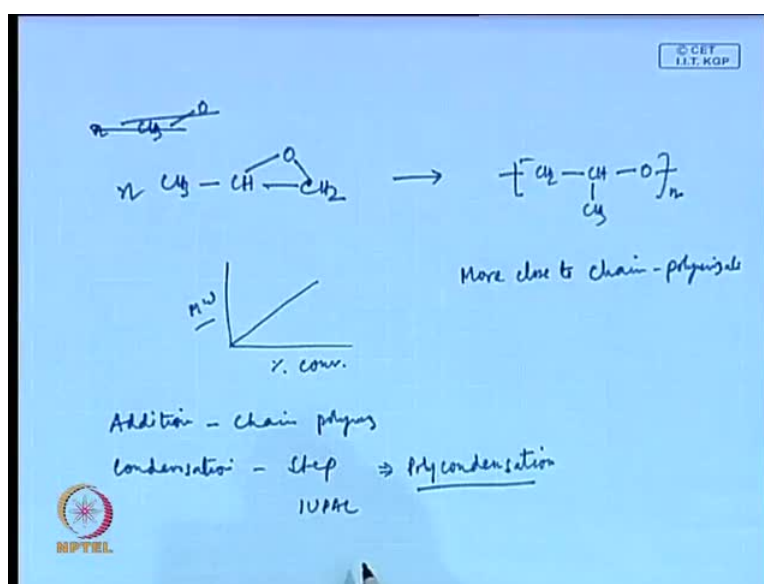 © CET
I.I.T. KGP
n CH3 O
n CH3 — CH — CH2 → [ CH2 — CH — O ]n
O
CH3
More close to chain-
MW
% conv.
Addition - chain
Condensation - Step ⇒ Polycondensation
IUPAC
NPTEL